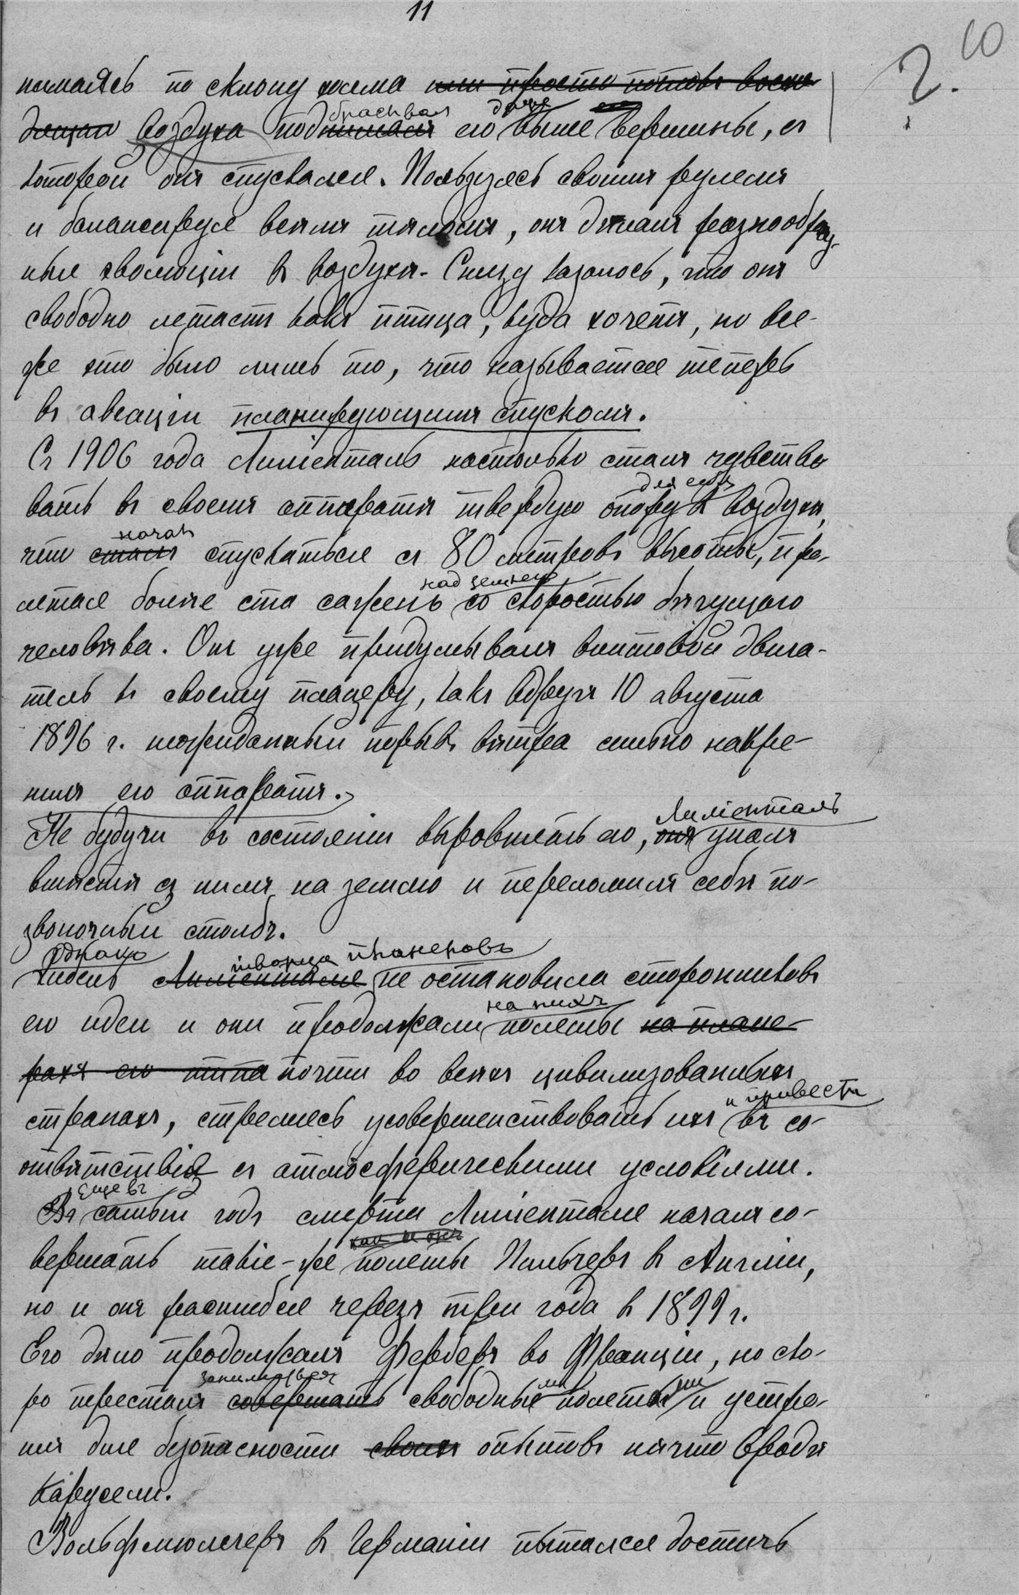 11
10
?.
нимаясь по склону холма или просто потокъ восхо
дящаго воздуха подбрасывал его даже выше вершины, съ
которой онъ спускался. Пользуясь своимъ рулемъ
и балансируя всѣмъ тѣломъ, онъ дѣлалъ разнообраз
ныя эволюціи въ воздухѣ. Снизу казалось, что онъ
свободно летаетъ какъ птица, куда хочетъ, но все-
же это было лишь то, что называется теперь
въ авіаціи планирующимъ спускомъ.
Съ 1906 года Лиліенталь настолько сталъ чувство
вать въ своемъ аппаратѣ твердую опору для себя въ воздухѣ,
что началъ спускаться съ 80 метровъ высоты, про-
летая болѣе ста сажень над землею со скоростью бѣгущаго
человѣка. Онъ уже придумывалъ винтовой двига-
тель къ своему планеру, какъ вдругъ 10 августа
1896 г. неожиданный порывъ вѣтра сильно накре-
нилъ его аппаратъ.
Не будучи въ состояніи выровнять его, Лиліенталь упалъ
вмѣстѣ съ нимъ на землю и переломилъ себѣ по-
звоночный столбъ.
Однако гибель творца планеровъ не остановила сторонниковъ
его идеи и они продолжали на нихъ полеты на плане-
рахъ его типа почти во всѣхъ цивилизованныхъ
странахъ, стремясь усовершенствовать ихъ и привести въ со-
отвѣтствіе съ атмосферическими условіями.
Еще въ самый годъ смерти Лиліенталя началъ со-
вершать такіе-же полеты Пильчеръ въ Англіи,
но и онъ расшибся черезъ три года въ 1899 г.
Его дѣло продолжалъ Ферберъ во Франціи, но ско-
ро пересталъ заниматься свободными полетами и устро-
илъ для безопасности своихъ опытовъ нѣчто вродѣ
карусели.
Вольфмюллеръ въ Германіи пытался достичь